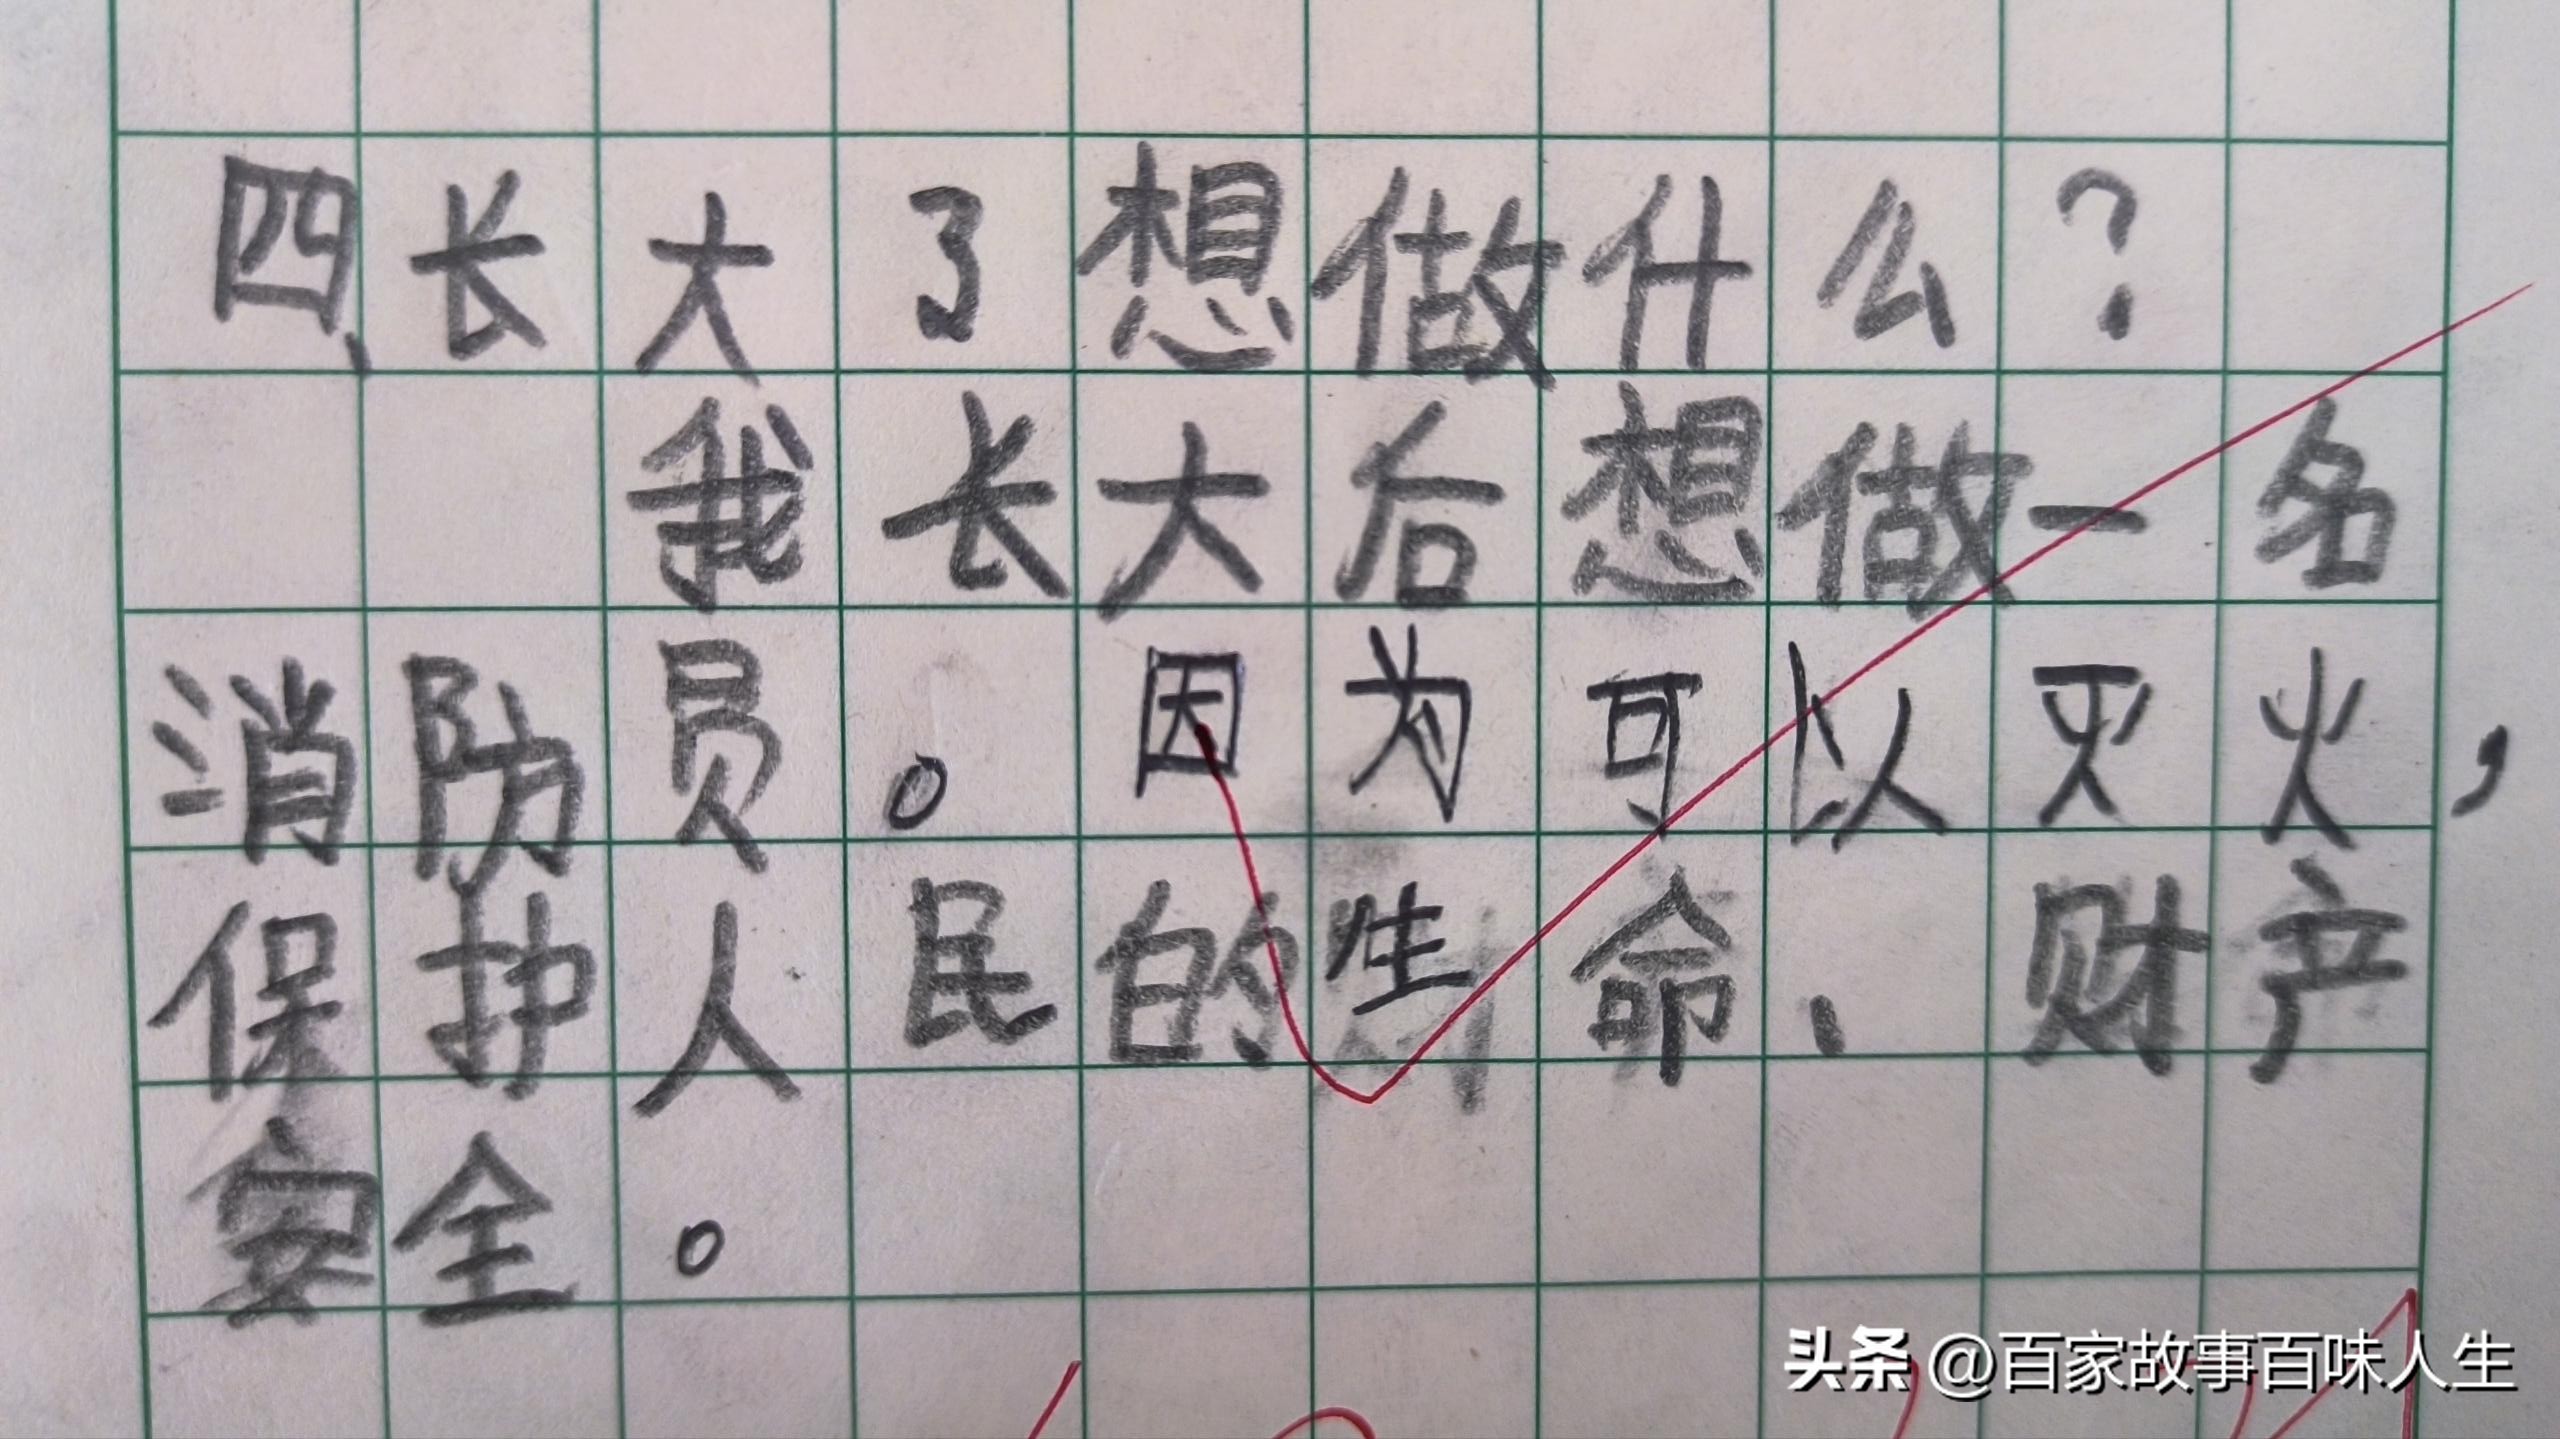 四、长大了想做什么？
我长大后想做一名
消防员。因为可以灭火，
保护人民的生命、财产
安全。
头条 @百家故事百味人生